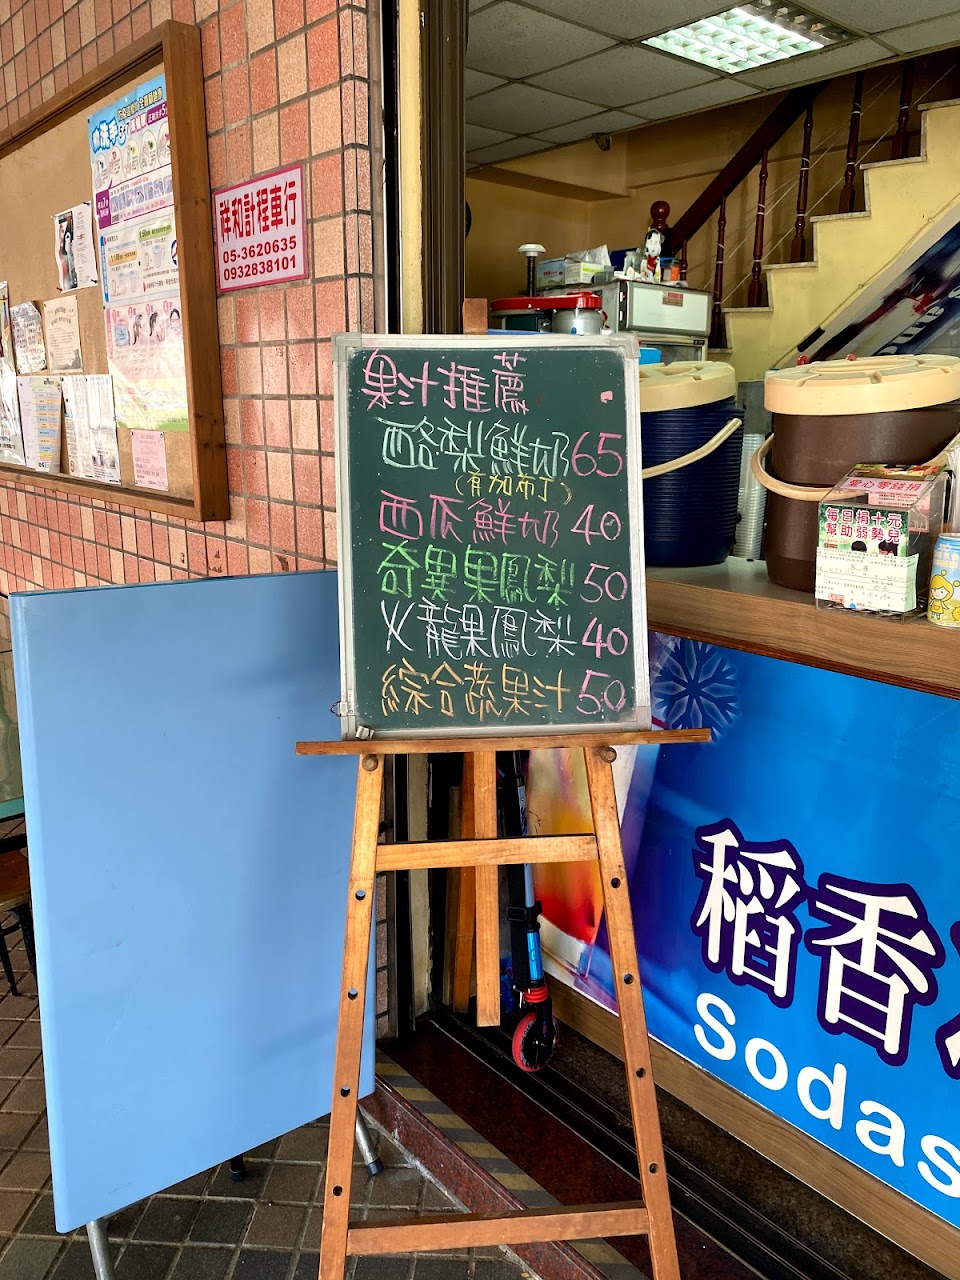 祥和計程車行
05-3620635
0932838101
果汁推薦
酪梨鮮奶65
(有加布丁)
西瓜鮮奶40
奇異果鳳梨50
火龍果鳳梨40
綜合蔬果汁50
愛心零錢捐
每日捐十元
幫助弱勢兒
稻香
Sodas